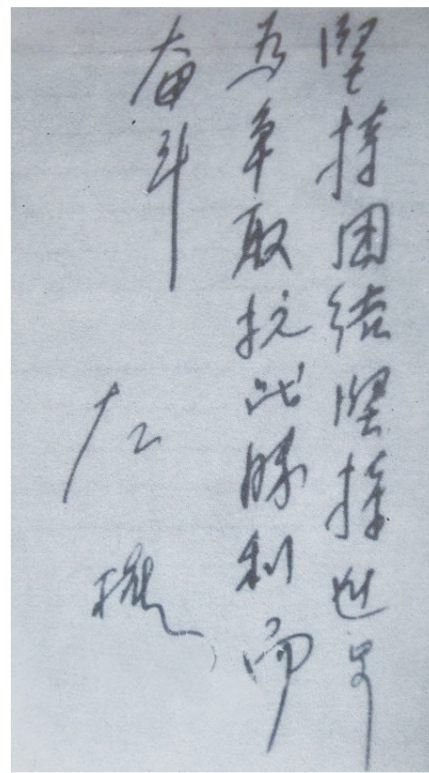 坚持团结坚持进步
为争取抗战胜利而
奋斗
左权